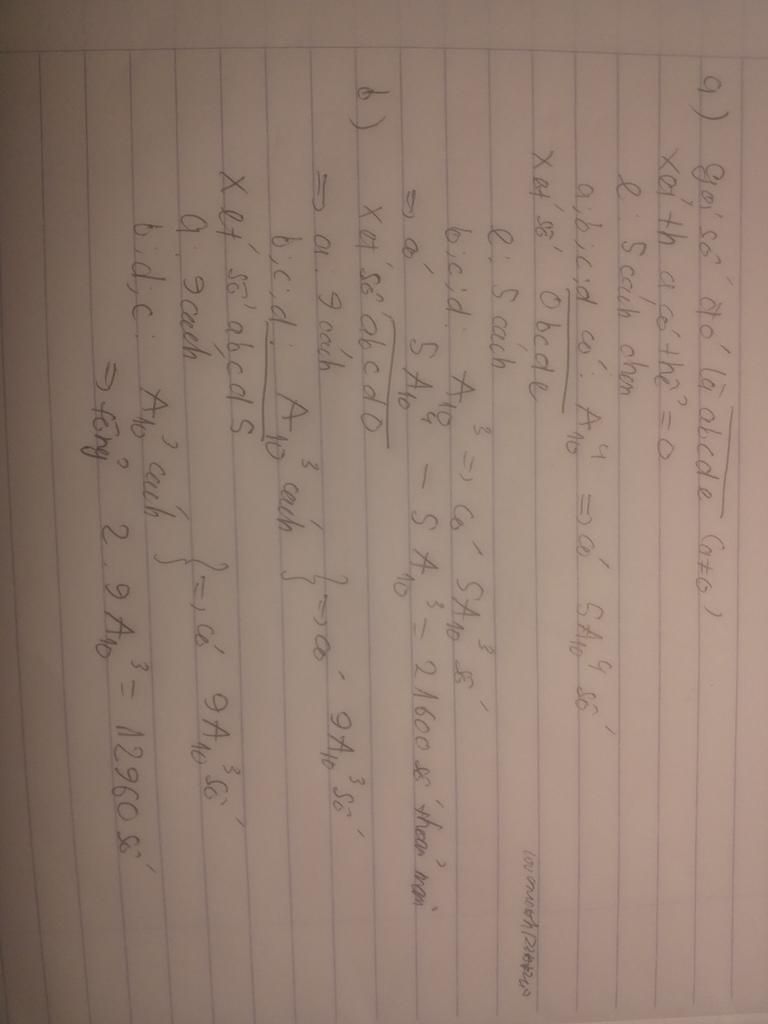 a) gọi số đó là abcde (a≠0)
xét th a có thể = 0
e : 5 cách chọn
a,b,c,d có : A₁₀⁴ => có 5A₁₀⁴ số
xét số 0bcde
e : 5 cách
b,c,d : A₁₀³ => có 5A₁₀³ số
=> có 5A₁₀⁴ - 5A₁₀³ = 21600 số thoả mãn
b) xét số abcd0
=> a : 9 cách
b,c,d : A₁₀³ cách } => có 9A₁₀³ số
xét số abcd5
a : 9 cách
b,d,c : A₁₀³ cách } => có 9A₁₀³ số
=> tổng 2.9A₁₀³ = 12960 số